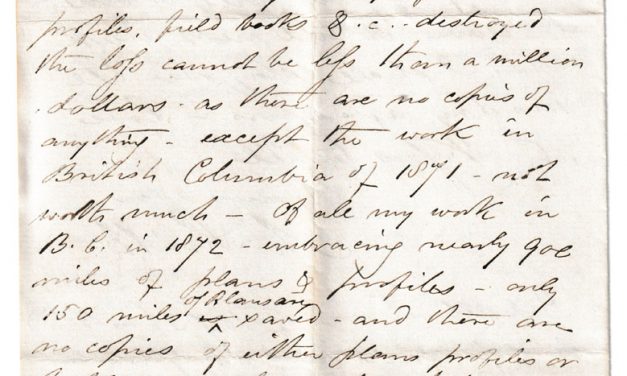 profiles, field books & c. - destroyed
the loss cannot be less than a million
dollars - as there are no copies of
anything - except the work in
British Columbia of 1871 - not
worth much - Of all my work in
B.C. in 1872 - embracing nearly 900
miles of plans & profiles - only
of Plans are
150 miles saved - and there are
no copies of either plans profiles or